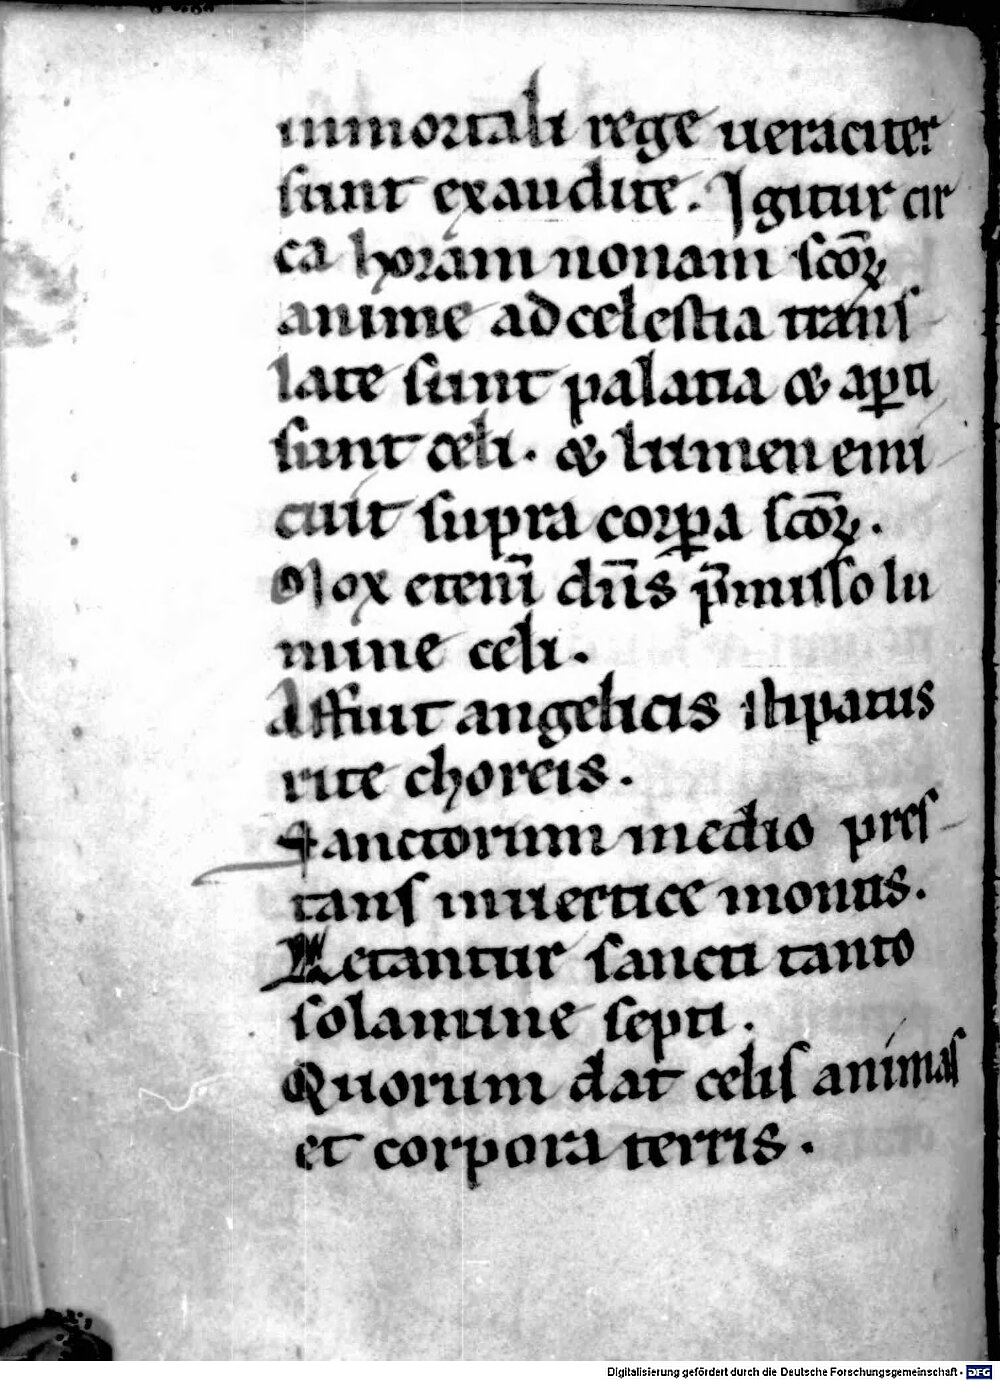 immortali rege ueraciter
sunt exaudite. Igitur cir
ca horam nonam scōꝝ
anime ad celestia trans
late sunt palatia & aꝑti
sunt celi. & lumen emi
cuit supra corꝑa scōꝝ.
Mox eteni̅ dn̅s p̅misso lu
mine celi.
Affuit angelicis stipatus
rite choreis.
Sanctorum medio pres
tans inuertice montis.
Letantur sancti tanto
solamine septi.
Quorum dat celis animas
et corpora terris.
Digitalisierung gefördert durch die Deutsche Forschungsgemeinschaft - DFG